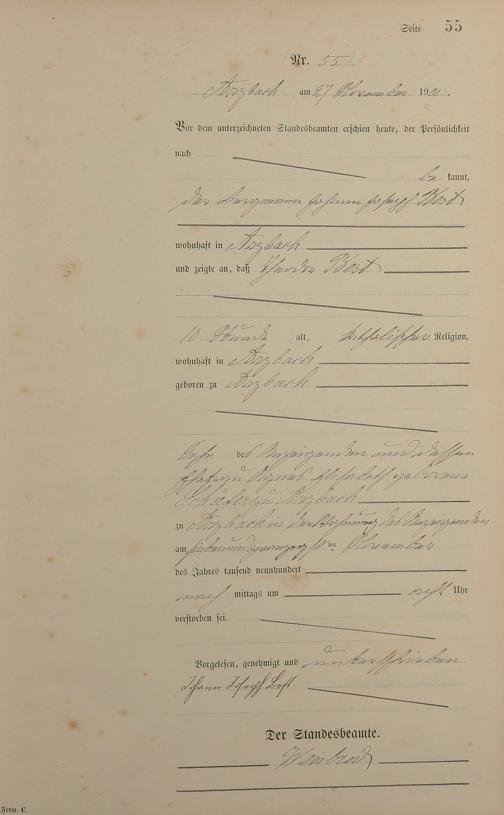 Seite 55
Nr. 55.
Arzbach am 27 November 1900.
Vor dem unterzeichneten Standesbeamten erschien heute, der Persönlichkeit
nach
be kannt,
der Bergmann Johann Joseph Best
wohnhaft in Arzbach
und zeigte an, daß Theodor Best
10 Stunde alt, katholischer Religion,
wohnhaft in Arzbach
geboren zu Arzbach
Sohn des Anzeigenden und dessen
Ehefrau Agnes Elisabeth geborene
Schäfer zu Arzbach
zu Arzbach in der Wohnung des Anzeigenden
am siebenundzwanzigsten November
des Jahres tausend neunhundert
nach mittags um acht Uhr
verstorben sei.
Vorgelesen, genehmigt und unterschrieben
Johann Joseph Best
Der Standesbeamte.
Weinbrod
Form. C.